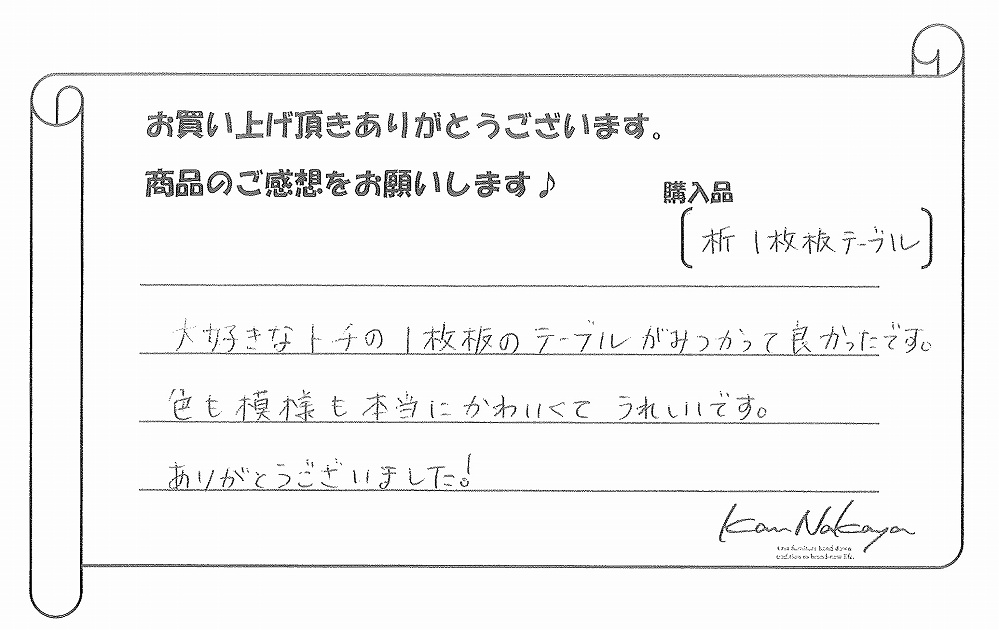 お買い上げ頂きありがとうございます。
商品のご感想をお願いします♪
購入品
析 1枚板テーブル
大好きなトチの1枚板のテーブルがみつかって良かったです。
色も模様も本当にかわいくてうれしいです。
ありがとうございました!
Kan Nakaya